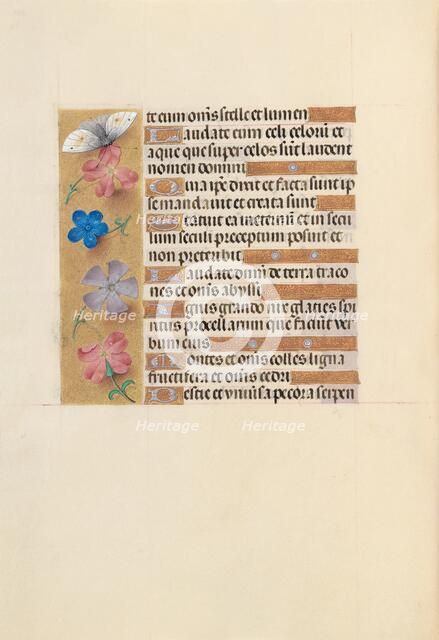 te eum oms stelle et lumen
Laudate eum celi celorum et
aque que super celos sunt laudent
nomen domini
Quia ipe dixit et facta sunt ip
se mandavit et creata sunt
Statuit ea in eternum et in secu
lum seculi preceptum posuit et
non preteribit
Laudate dnm de terra traco
nes et oms abyssi
Ignis grando nix glacies spi
ritus procellarum que faciunt ver
bum eius
Montes et oms colles ligna
fructifera et oms cedri
Bestie et universa pecora serpen
Heritage
Heritage
Heritage
Heritage
Heritage
Heritage